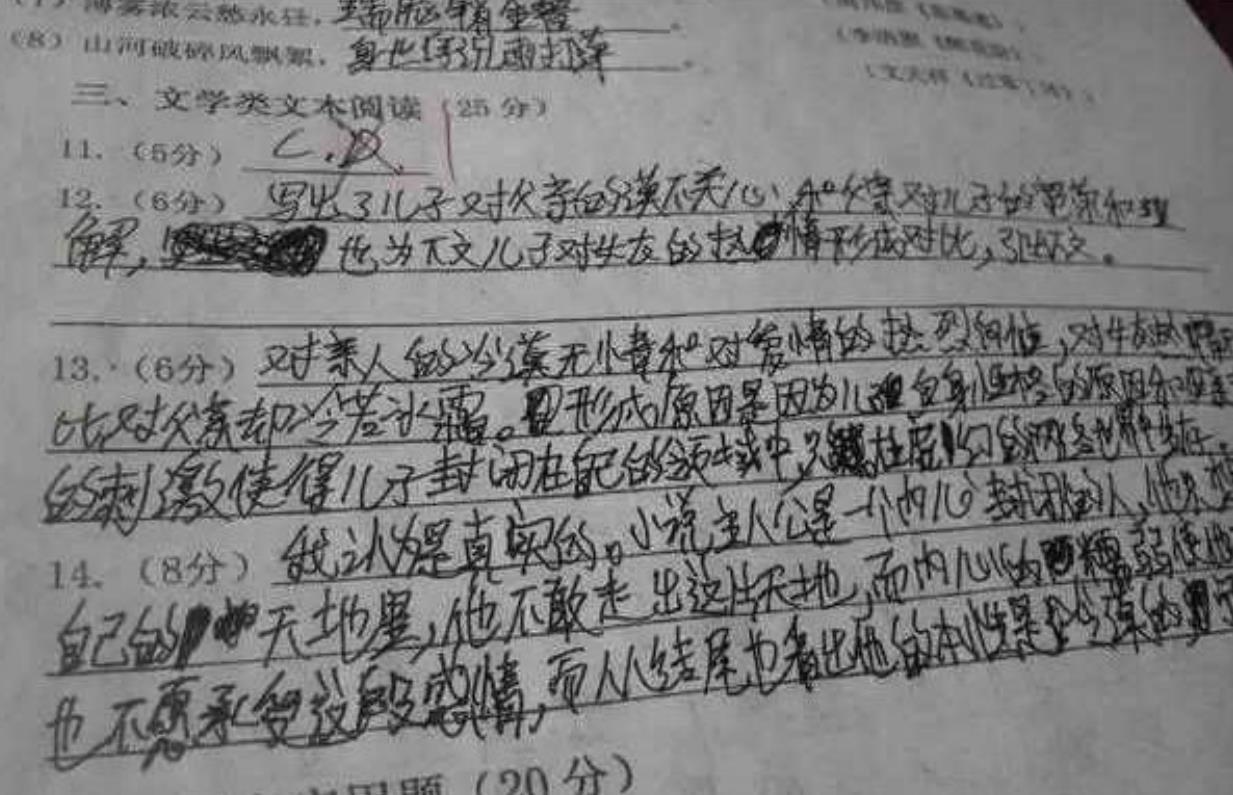 (7) 薄雾浓云愁永昼，瑞脑销金兽。
(8) 山河破碎风飘絮，身世浮沉雨打萍。
三、文学类文本阅读（25分）
11.（5分）C.D.
12.（6分）写出了儿子对父亲的漠不关心和父亲对儿子的
解，也为下文儿子对女友的热情形成对比，引出下文。
13.（6分）对亲人的冷漠无情和对爱情的热烈，对女友
比，对父亲却冷若冰霜。形成原因是因为儿自身性格的原因和
的刺激使得儿子封闭在自己的领域中，只在虚幻的网络世界
14.（8分）我认为是真实的。小说主人公是一个内心封闭的人，他
自己的天地里，他不敢走出这片天地，而内心的懦弱使他
也不愿承受这段感情，而从结尾也看出他的本性是冷漠的
（20分）